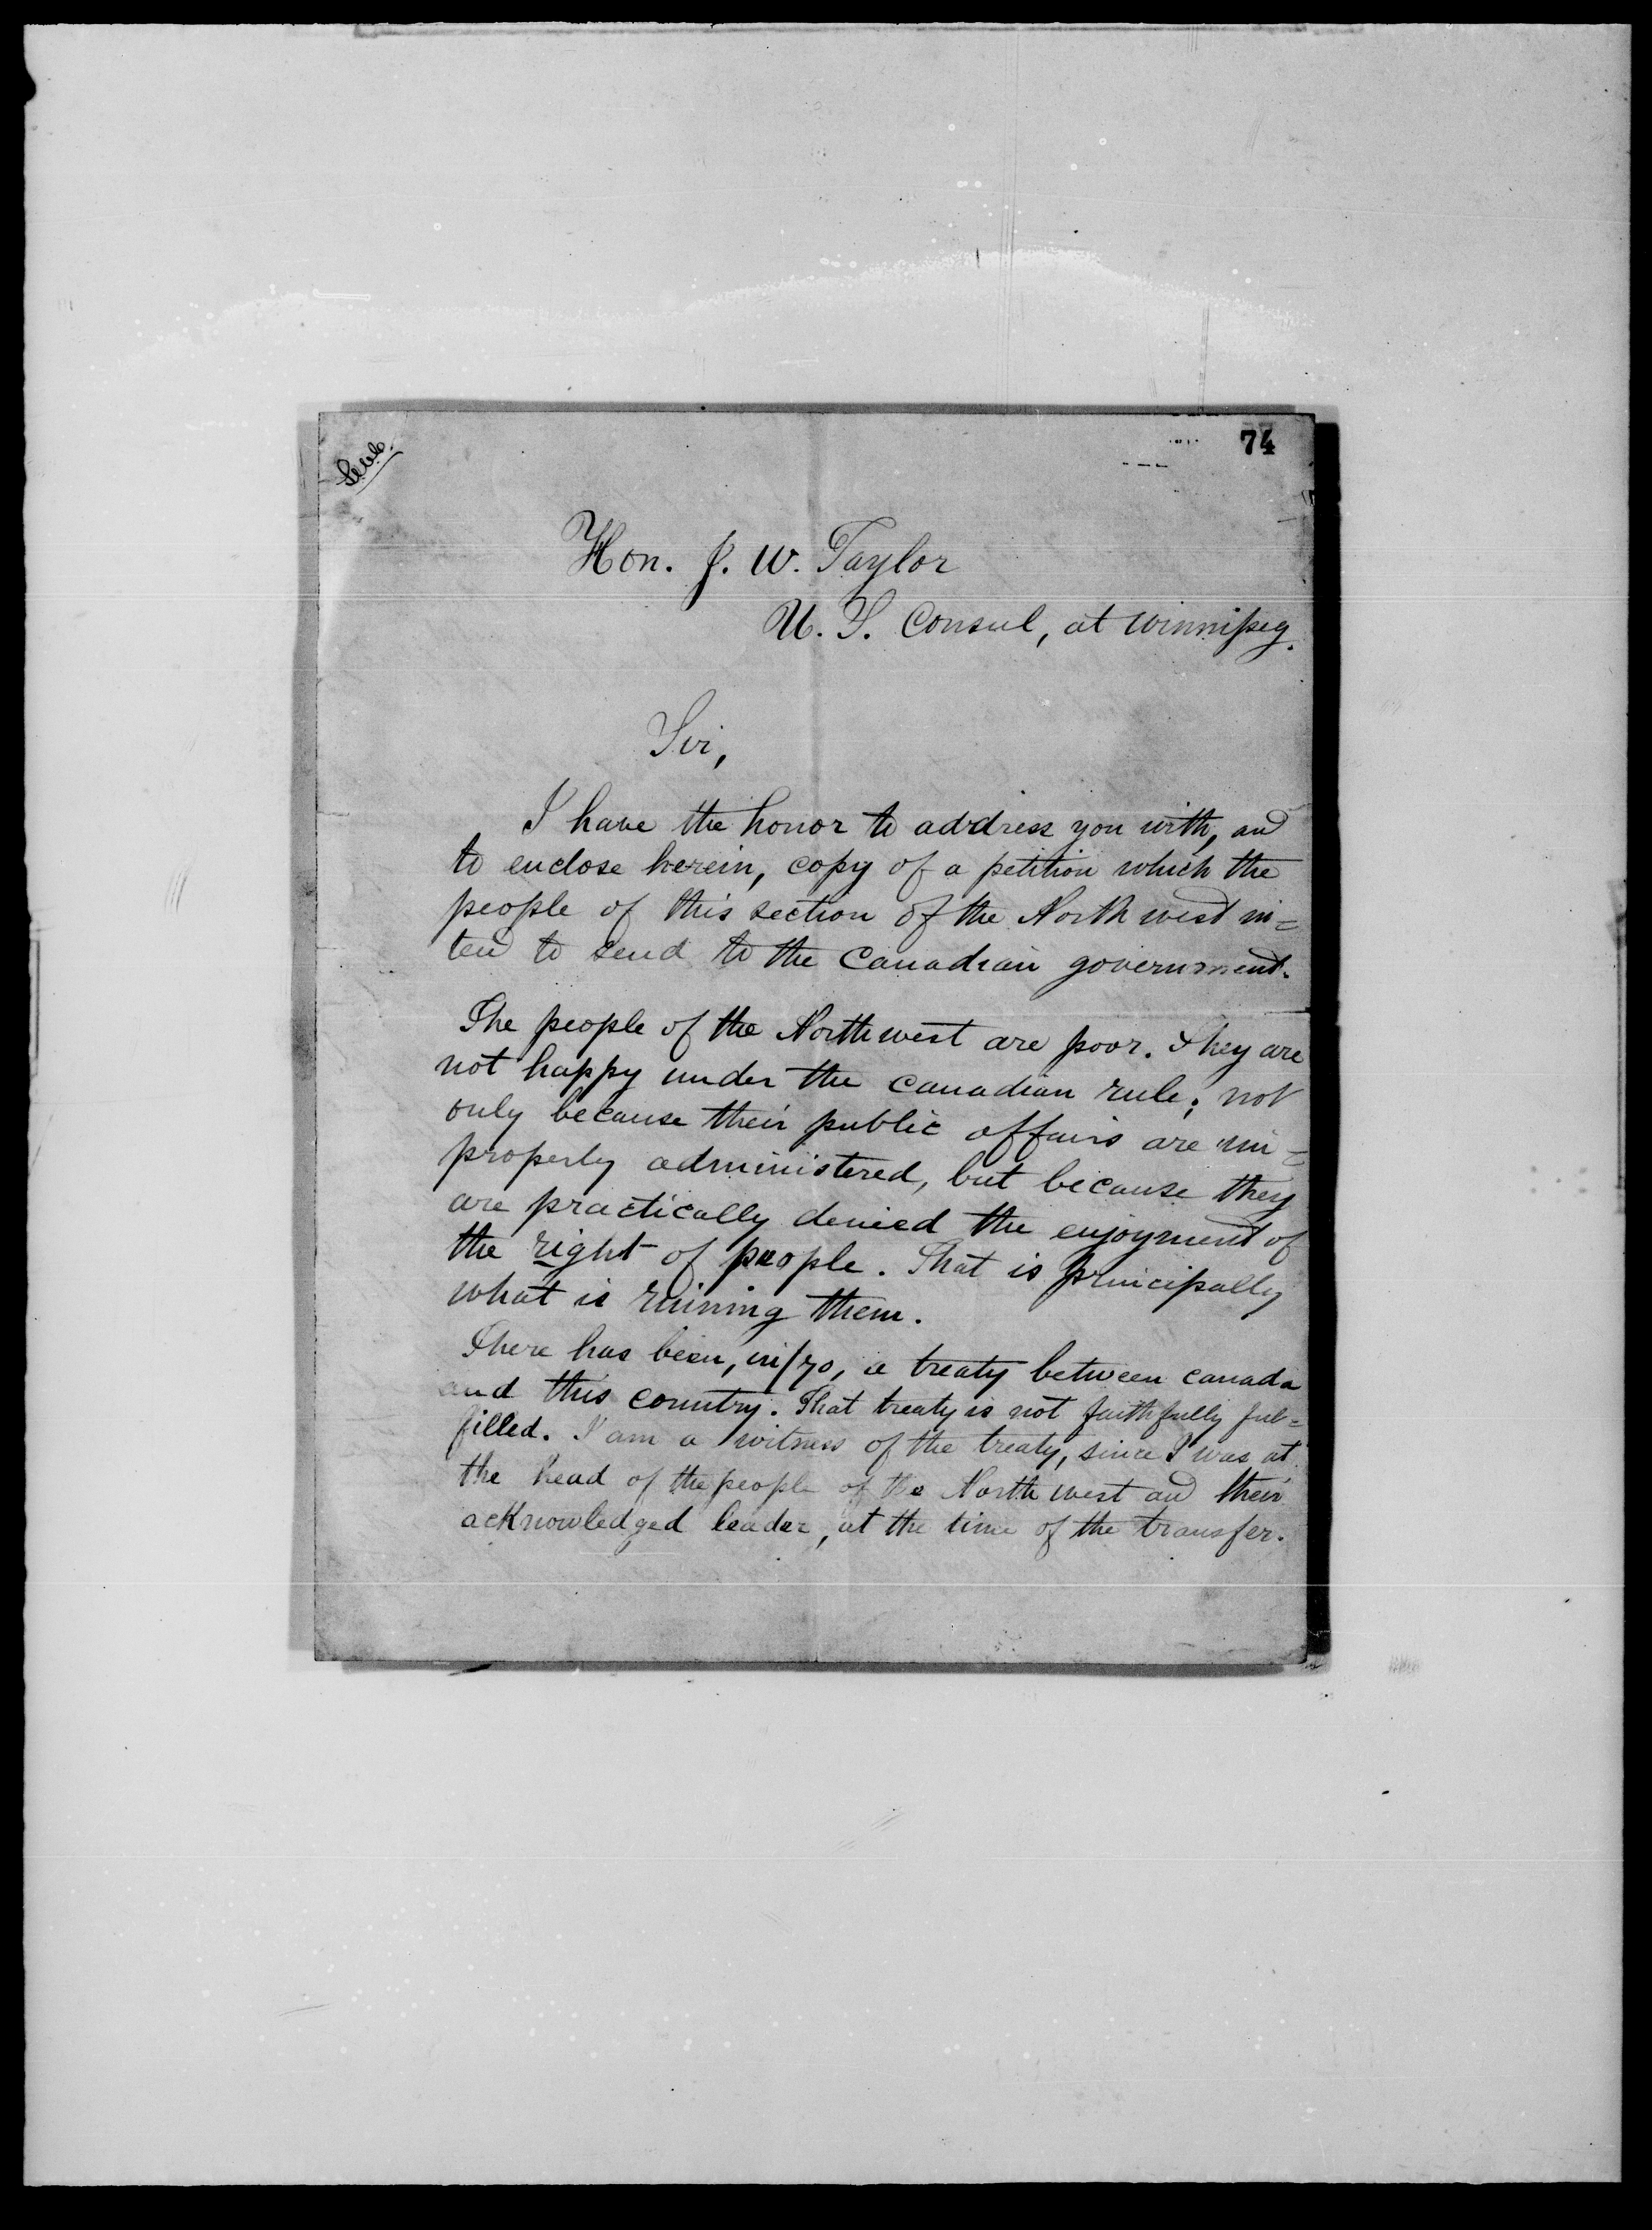 74
Hon. J. W. Taylor
U. S. Consul, at Winnipeg.
Sir,
I have the honor to address you with, and
to enclose herein, copy of a petition which the
people of this section of the North west in=
tend to send to the Canadian government.
The people of the Northwest are poor. They are
not happy under the canadian rule; not
only because their public affairs are im=
properly administered, but because they
are practically denied the enjoyment of
the right of people. That is principally
what is ruining them.
There has been, in/70, a treaty between canada
and this country. That treaty is not faithfully ful=
filled. I am a witness of the treaty, since I was at
the head of the people of the North west and their
acknowledged leader, at the time of the transfer.